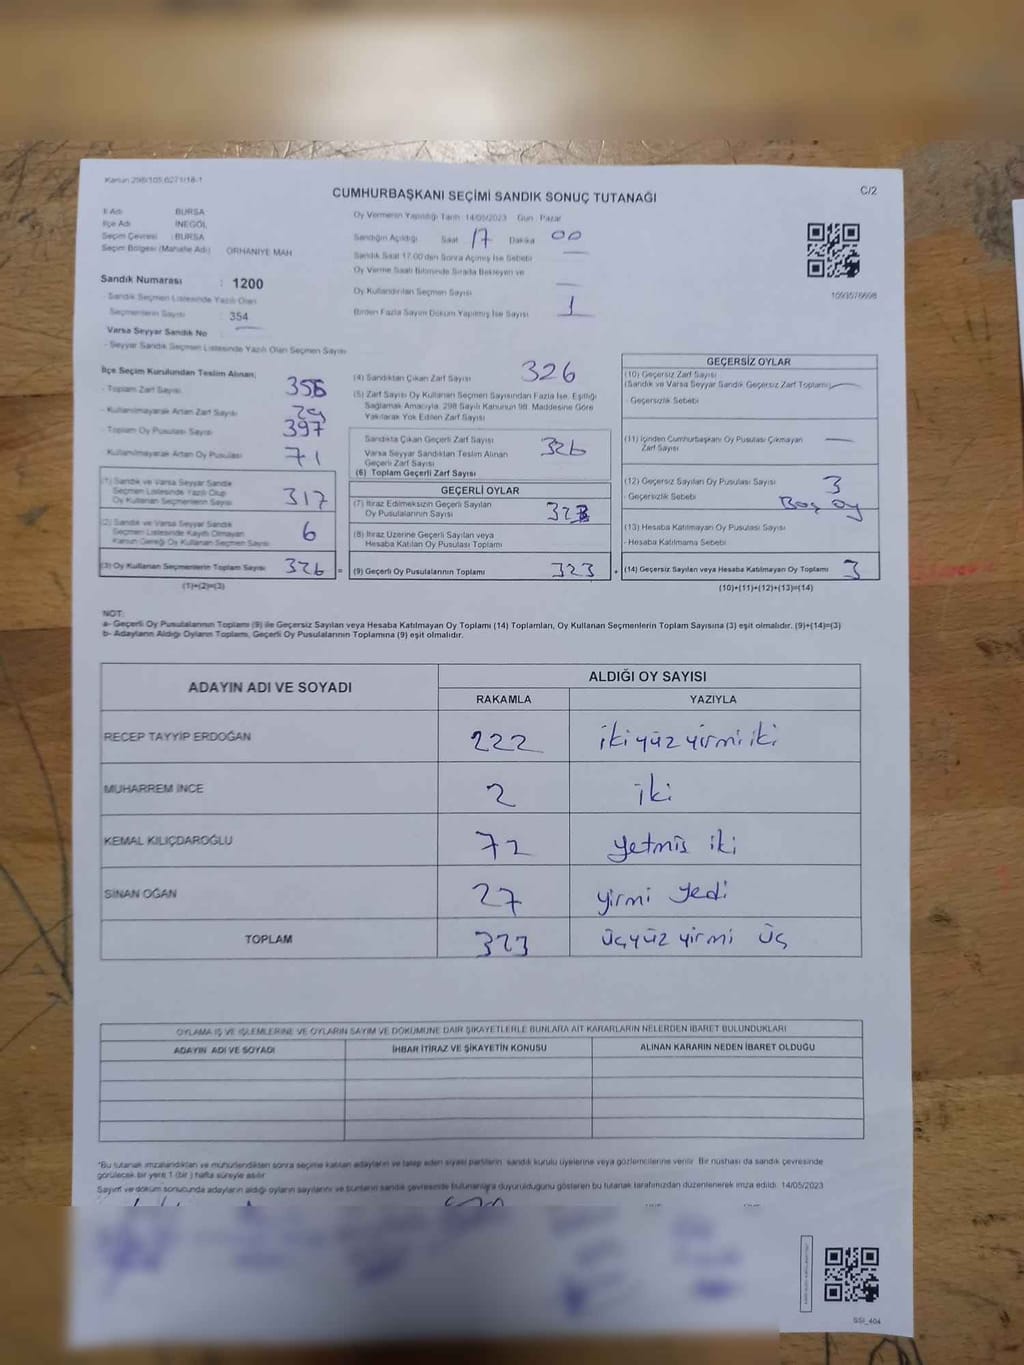 Kanun 298/105,6271/18-1
CUMHURBAŞKANI SEÇİMİ SANDIK SONUÇ TUTANAĞI
C/2
İl Adı BURSA
İlçe Adı İNEGÖL
Seçim Çevresi : BURSA
Seçim Bölgesi (Mahalle Adı) ORHANİYE MAH
Sandık Numarası : 1200
- Sandık Seçmen Listesinde Yazılı Olan
Seçmenlerin Sayısı : 354
Varsa Seyyar Sandık No
- Seyyar Sandık Seçmen Listesinde Yazılı Olan Seçmen Sayısı
Oy Vermenin Yapıldığı Tarih : 14/05/2023 Gün : Pazar
Sandığın Açıldığı Saat 17 Dakika 00
Sandık Saat 17.00'den Sonra Açılmış İse Sebebi
Oy Verme Saati Bitiminde Sırada Bekleyen ve
Oy Kullandırılan Seçmen Sayısı
Birden Fazla Sayım Döküm Yapılmış İse Sayısı 1
1093576698
İlçe Seçim Kurulundan Teslim Alınan;
- Toplam Zarf Sayısı 355
- Kullanılmayarak Artan Zarf Sayısı 29
- Toplam Oy Pusulası Sayısı 397
- Kullanılmayarak Artan Oy Pusulası 71
(1) Sandık ve Varsa Seyyar Sandık
Seçmen Listesinde Yazılı Olup
Oy Kullanan Seçmenlerin Sayısı 317
(2) Sandık ve Varsa Seyyar Sandık
Seçmen Listesinde Kayıtlı Olmayan
Kanun Gereği Oy Kullanan Seçmen Sayısı 6
(3) Oy Kullanan Seçmenlerin Toplam Sayısı 326 =
(1)+(2)=(3)
(4) Sandıktan Çıkan Zarf Sayısı 326
(5) Zarf Sayısı Oy Kullanan Seçmen Sayısından Fazla İse, Eşitliği
Sağlamak Amacıyla, 298 Sayılı Kanunun 98. Maddesine Göre
Yakılarak Yok Edilen Zarf Sayısı
Sandıkta Çıkan Geçerli Zarf Sayısı 326
Varsa Seyyar Sandıktan Teslim Alınan
Geçerli Zarf Sayısı
(6) Toplam Geçerli Zarf Sayısı
GEÇERLİ OYLAR
(7) İtiraz Edilmeksizin Geçerli Sayılan
Oy Pusulalarının Sayısı 323
(8) İtiraz Üzerine Geçerli Sayılan veya
Hesaba Katılan Oy Pusulası Toplamı
(9) Geçerli Oy Pusulalarının Toplamı 323 +
GEÇERSİZ OYLAR
(10) Geçersiz Zarf Sayısı
(Sandık ve Varsa Seyyar Sandık Geçersiz Zarf Toplamı)
- Geçersizlik Sebebi
(11) İçinden Cumhurbaşkanı Oy Pusulası Çıkmayan
Zarf Sayısı
(12) Geçersiz Sayılan Oy Pusulası Sayısı 3
- Geçersizlik Sebebi Boş oy
(13) Hesaba Katılmayan Oy Pusulası Sayısı
- Hesaba Katılmama Sebebi
(14) Geçersiz Sayılan veya Hesaba Katılmayan Oy Toplamı 3
(10)+(11)+(12)+(13)=(14)
NOT:
a- Geçerli Oy Pusulalarının Toplamı (9) ile Geçersiz Sayılan veya Hesaba Katılmayan Oy Toplamı (14) Toplamları, Oy Kullanan Seçmenlerin Toplam Sayısına (3) eşit olmalıdır. (9)+(14)=(3)
b- Adayların Aldığı Oyların Toplamı, Geçerli Oy Pusulalarının Toplamına (9) eşit olmalıdır.
ADAYIN ADI VE SOYADI
ALDIĞI OY SAYISI
RAKAMLA YAZIYLA
RECEP TAYYİP ERDOĞAN 222 ikiyüzyirmiiki
MUHARREM İNCE 2 iki
KEMAL KILIÇDAROĞLU 72 yetmis iki
SİNAN OĞAN 27 yirmi yedi
TOPLAM 323 üçyüzyirmi üç
OYLAMA İŞ VE İŞLEMLERİNE VE OYLARIN SAYIM VE DÖKÜMÜNE DAİR ŞİKAYETLERLE BUNLARA AİT KARARLARIN NELERDEN İBARET BULUNDUKLARI
ADAYIN ADI VE SOYADI İHBAR İTİRAZ VE ŞİKAYETİN KONUSU ALINAN KARARIN NEDEN İBARET OLDUĞU
*Bu tutanak imzalandıktan ve mühürlendikten sonra seçime katılan adayların ve talep eden siyasi partilerin sandık kurulu üyelerine veya gözlemcilerine verilir. Bir nüshası da sandık çevresinde
görülecek bir yere 1 (bir) hafta süreyle asılır.
Sayım ve döküm sonucunda adayların aldığı oyların sayılarını ve bunların sandık çevresinde bulunanlara duyurulduğunu gösteren bu tutanak tarafımızdan düzenlenerek imza edildi. 14/05/2023
SSİ_404